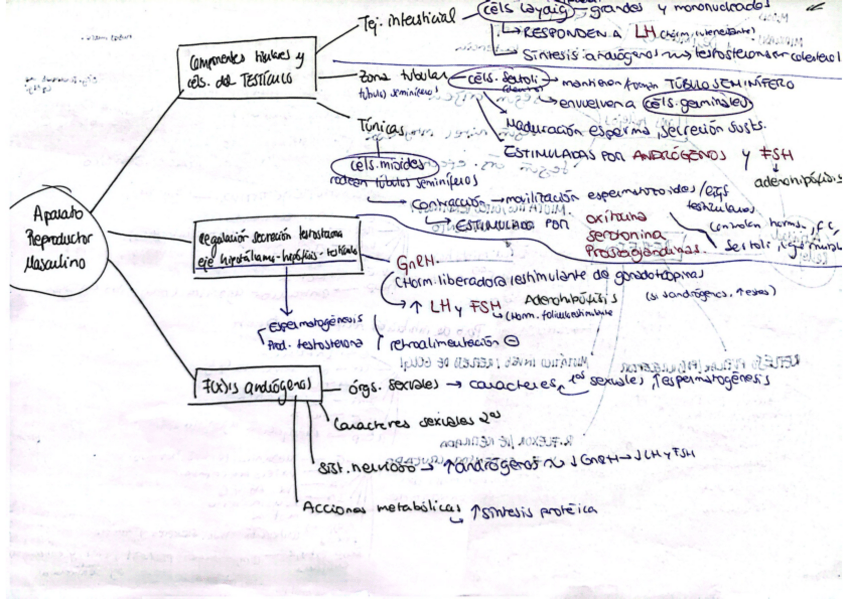 Tej. intersticial
céls Leydig → grandes y mononucleadas
RESPONDEN A LH
Síntesis andrógenos testosterona colesterol
Componentes tisulares y
céls. del TESTÍCULO
Zona tubular
túbulos seminíferos
céls. Sertoli
mantienen forman TÚBULO SEMINÍFERO
envuelven a céls. germinales
Maduración esperma, secreción susts.
ESTIMULADAS POR ANDRÓGENOS Y FSH
adenohipófisis
Túnicas
céls. mioides
rodean túbulos seminíferos
Contracción → movilización espermatozoides
ESTIMULADO POR
oxitocina
serotonina
Prostaglandinas.
Aparato
Reproductor
Masculino
Regulación secreción testosterona
eje hipotálamo-hipófisis-testículo
GnRH.
(Horm. liberadora estimulante de gonadotropinas
→ ↑ LH y FSH
Adenohipófisis
(Horm. foliculoestimulante
Espermatogénesis
Prod. testosterona
retroalimentación ⊖
F(x)s andrógenos
órgs. sexuales → caracteres 1os sexuales, ↑espermatogénesis
Caracteres sexuales 2os
Sist. nervioso → ↑ andrógenos ↓GnRH → ↓LH y FSH
Acciones metabólicas
↑ síntesis protéica